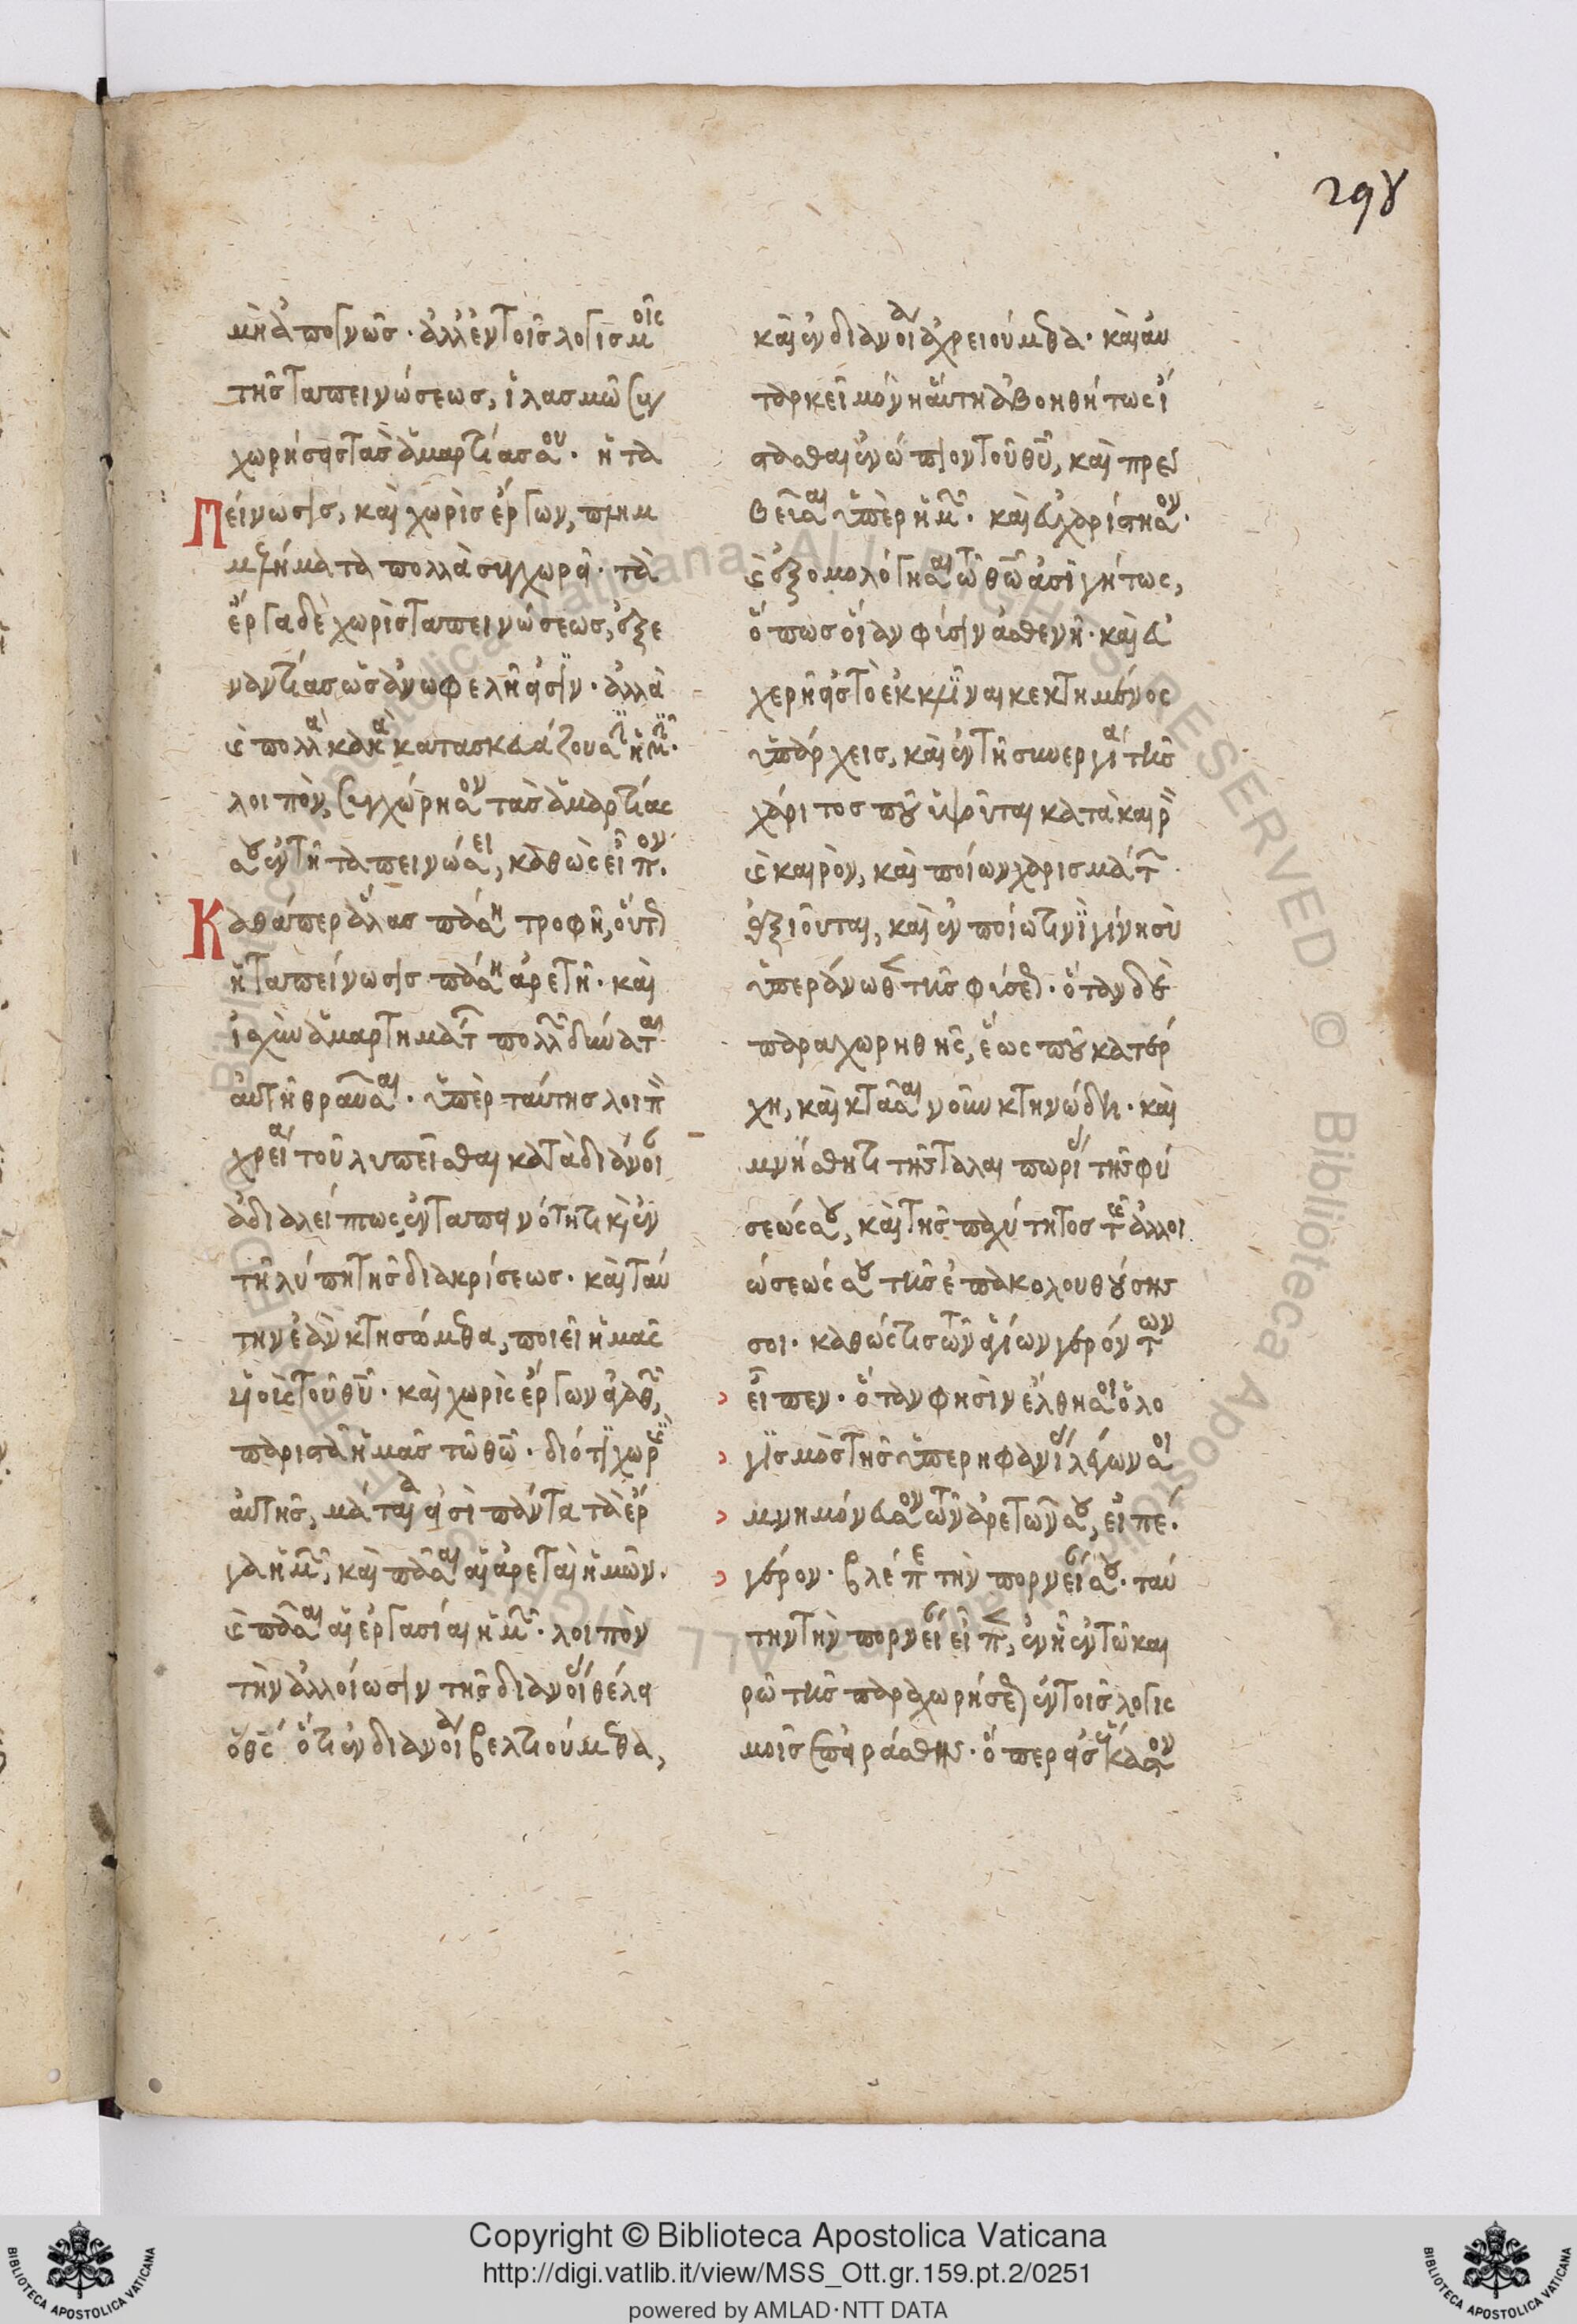 298
μὴ ἀπογνῶς· ἀλλ' ἐν τοῖς λογισμοῖς
τῆς ταπεινώσεως, ἱλασμῶ συγ
χωρήσεις τὰς ἁμαρτίας σου. ἡ τα
Πείνωσις, καὶ χωρὶς ἔργων, πλημ
μελήματα πολλὰ συγχωρεῖ· τὰ
ἔργα δὲ χωρὶς ταπεινώσεως, ἐξε
ναντίας ὡς ἀνωφελῆ εἰσίν· ἀλλὰ
καὶ πολλὰ κακὰ κατασκευάζουσιν ἡμῖν·
λοιπὸν, συγχώρησον τὰς ἁμαρτίας
σου ἐν τῆ ταπεινώσει, καθὼς εἶπον.
Καθάπερ ἅλας πάση τροφῆ, οὕτως
ἡ ταπείνωσις πάση ἀρετῆ· καὶ
ἰσχὺν ἁμαρτημάτων πολλῶν δύναται
αὐτὴ θραῦσαι. ὑπὲρ ταύτης λοιπὸν
χρεία τοῦ λυπεῖσθαι κατὰ διάνοιαν
ἀδιαλείπτως ἐν ταπεινότητι καὶ ἐν
τῆ λύπη τῆς διακρίσεως. καὶ ταύ
την ἐὰν κτησώμεθα, ποιεῖ ἡμᾶς
υἱοὺς τοῦ θῦ. καὶ χωρὶς ἔργων ἀγαθῶν,
παριστᾶ ἡμᾶς τῶ θῶ. διότι χωρὶς
αὐτῆς, μάταιά εἰσι πάντα τὰ ἔρ
γα ἡμῶν, καὶ πᾶσαι αἱ ἀρεταὶ ἡμῶν.
καὶ πᾶσαι αἱ ἐργασίαι ἡμῶν. λοιπὸν
τὴν ἀλλοίωσιν τῆς διανοίας θέλει
ὁ θς· ὅτι ἐν διανοία βελτιούμεθα,
καὶ ἐν διανοία ἀχρειούμεθα. καὶ αὐ
ταρκεῖ μόνη αὕτη ἀβοηθήτως ἵ
στασθαι ἐνώπιον τοῦ θῦ, καὶ πρεσ
βεῦσαι ὑπὲρ ἡμῶν. καὶ εὐχαρίστησον·
καὶ ἐξομολόγησαι τῶ θῶ ἀσιγήτως,
ὅπως οἵαν φύσιν ἀσθενῆ· καὶ εὐ
χερῆ εἰς τὸ ἐκκλῖναι κεκτημένος
ὑπάρχεις, καὶ ἐν τῆ συνεργία τῆς
χάριτος ποῦ ὑψοῦνται κατὰ καιρὸν
καὶ καιρὸν, καὶ ποίων χαρισμάτων
ἀξιοῦνται, καὶ ἐν ποίω τινὶ γίνη σὺ
ὑπεράνωθεν τῆς φύσεως. ὅταν δὲ
παραχωρηθῆς, ἕως ποῦ κατέρ
χη, καὶ κτᾶσαι νοῦν κτηνώδη. καὶ
μνήσθητι τῆς ταλαιπωρίας τῆς φύ
σεώς σου, καὶ τῆς παχύτητος τῆς ἀλλοι
ώσεώς σου τῆς ἐπακολουθούσης
σοι. καθώς τις τῶν ἁγίων γερόντων
εἶπεν. ὅταν φησὶν ἔλθη σοι ὁ λο
γισμὸς τῆς ὑπερηφανίας λέγων σοι
μνημόνευσον τῶν ἀρετῶν σου, εἰπέ.
γέρον. βλέπε τὴν πορνείαν σου. ταύ
την τὴν πορνείαν εἶπεν, ἐν ἧ ἐν τῶ και
ρῶ τῆς παραχωρήσεως ἐν τοῖς λογισ
μοῖς ἐπειράσθης. ὅπερ εἰς ἕκαστον
Copyright © Biblioteca Apostolica Vaticana
http://digi.vatlib.it/view/MSS_Ott.gr.159.pt.2/0251
powered by AMLAD·NTT DATA
BIBLIOTECA APOSTOLICA VATICANA
BIBLIOTECA APOSTOLICA VATICANA